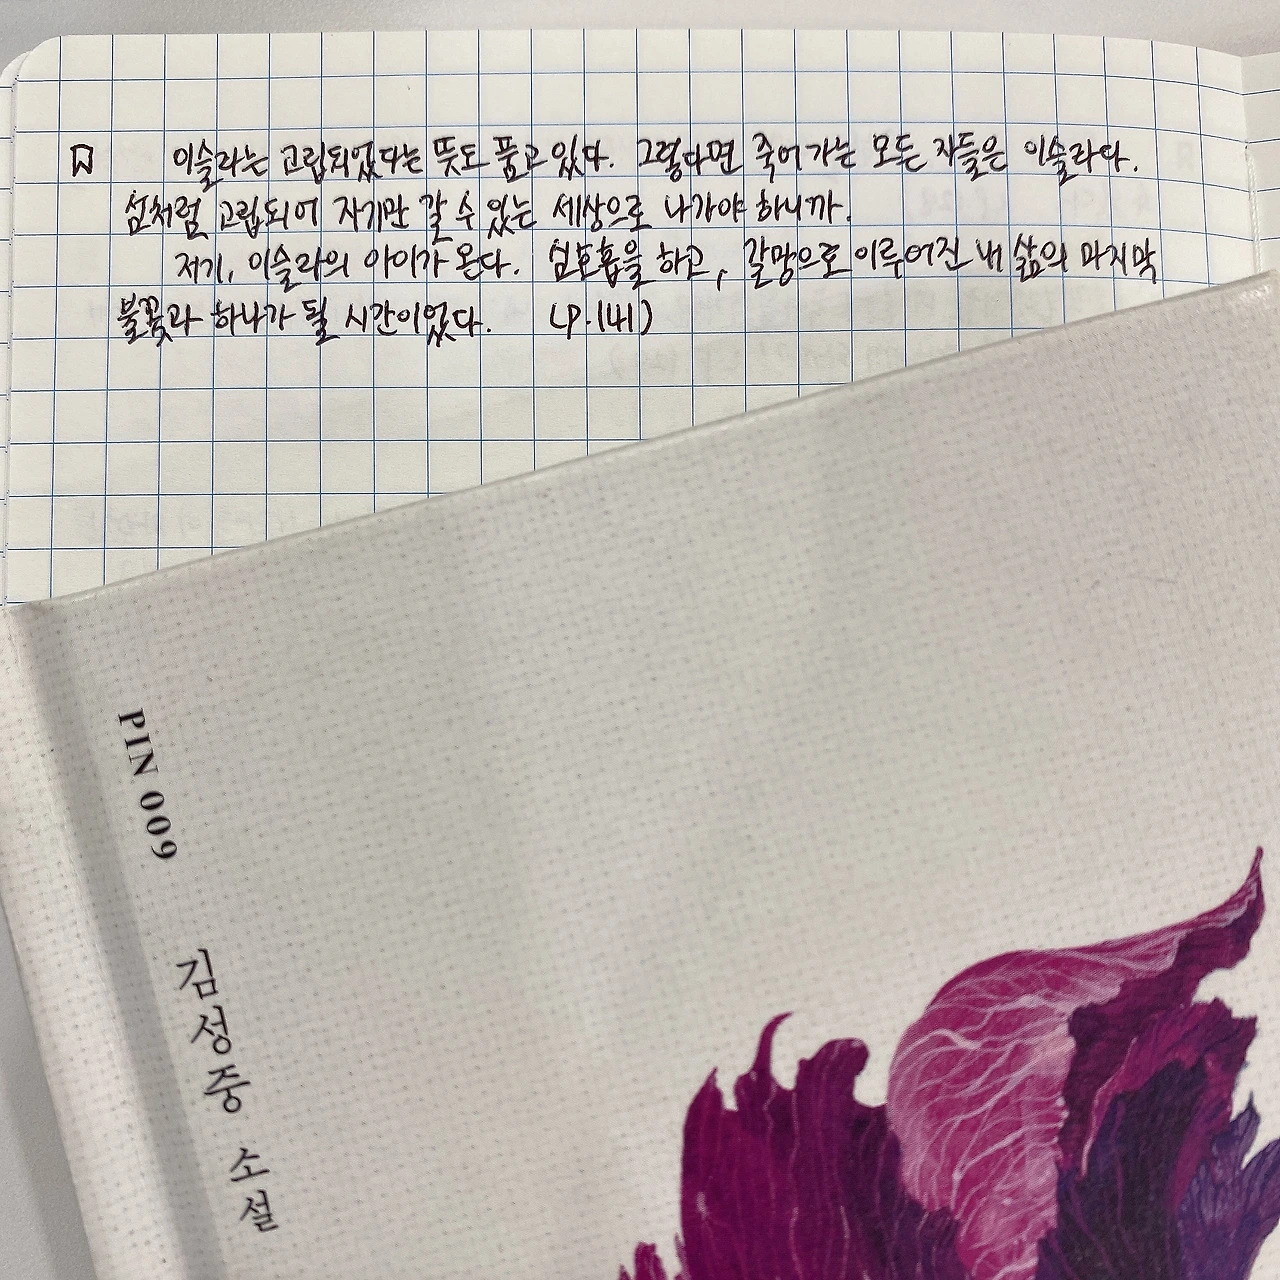 이슬라는 고립되었다는 뜻도 품고 있다. 그렇다면 죽어가는 모든 자들은 이슬라다.
섬처럼 고립되어 자기만 갈 수 있는 세상으로 나가야 하니까.
저기, 이슬라의 아이가 온다. 심호흡을 하고, 갈망으로 이루어진 내 삶의 마지막
불꽃과 하나가 될 시간이었다. (P.141)
PIN 009
김성중 소설